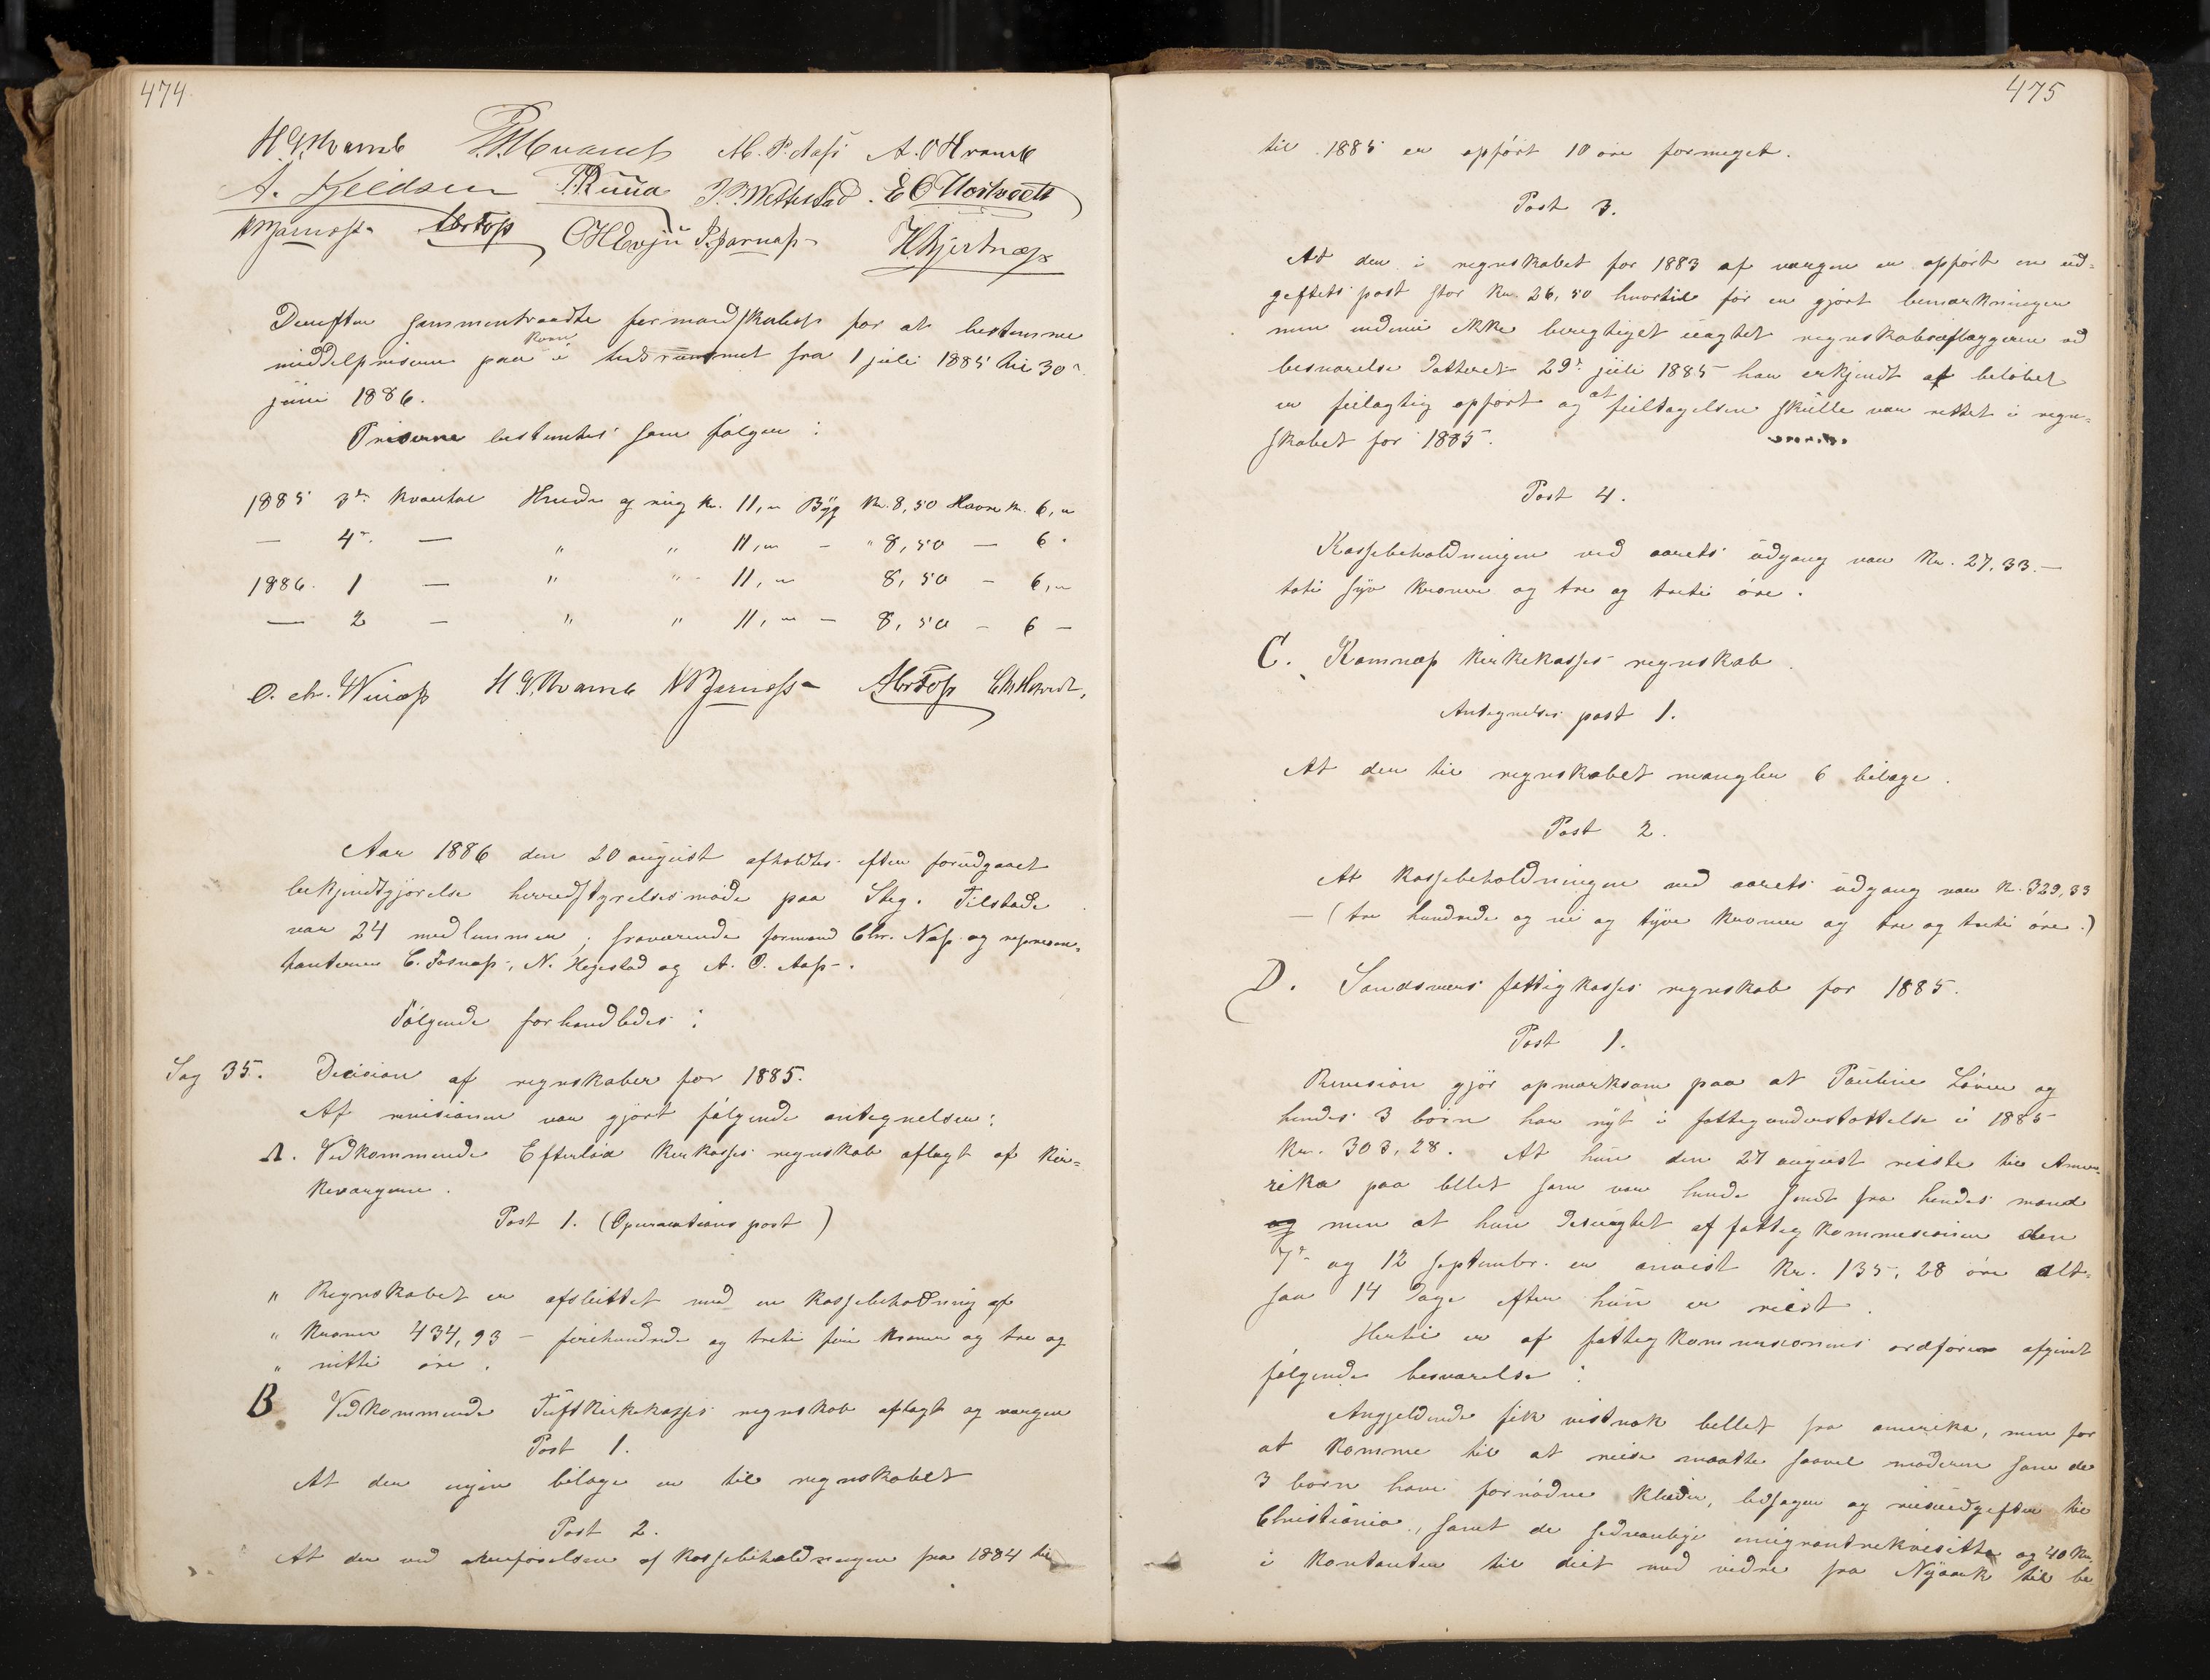 474
H. G. Kvamb P. Mvamb M. P. Aass A. O Kvamb
A. Kjeldsen P. Ruua J. P. Wettestad. E O Hostvedt
N P Jarness Abr Foss O H Evju P. Jarnass H. Hjertnæss
Derefter sammentraadte formandskabet for at bestemme
middelprisene paa korn i tidsrummet fra 1 juli 1885 til 30te
juni 1886.
Priserne bestemtes som følger:
1885 3de kvartal Hvede og rug kr. 11,„ Byg kr. 8,50 Havre kr. 6,„
— 4de — „ „ 11,„ — „ 8,50 — 6.
1886. 1 — „ „ 11,„ 8,50 — 6,„
— 2 — „ „ 11,„ — 8,50 — 6 —
O. Chr. H. G. Kvamb N P Jarness Abr Foss
Aar 1886 den 20 august afholdtes efter forudgaaet
bekjendtgjørelse herredstyrelsesmøde paa Steg. Tilstede
var 24 medlemmer; fraværende formand Chr. Næss og represen-
tanterne C. Fosnæss, N. Hegstad og A. O. Aass.
Følgende forhandledes:
Sag 35. Decision af regnskaber for 1885.
Af revisionen var gjort følgende antegnelser:
A. Vedkommende Efteløt kirkasses regnskab aflagt af kir-
kevergerne.
Post 1. (Operations post)
„ Regnskabet er afsluttet med en kassebeholdning af
„ kroner 434,93 — firehundrede og treti fire kroner og tre og
„ nitti øre.
B. Vedkommende Tuftkirkekasses regnskab aflagt og vergen
Post 1.
At der ingen bilage er til regnskabet
Post 2.
At der ved overførelsen af kassebeholdningen fra 1884 til
475
til 1885 er opført 10 øre formeget.
Post 3.
At den i regnskabet for 1883 af vergen er opført en ud-
giftets post stor kr. 26,50 hvortil før er gjort bemærkningen
men endnu ikke beregtiget uagtet regnskabsaflæggeren ved
besvarelse datteret 29de juli 1885 har erkjendt at beløbet
er feilagtig opført og at feiltagelsen skulle var rettet i regn-
skabet for 1885.
Post 4.
Kassebeholdningen ved aarets udgang var kr. 27,33. —
toti syv kroner og tre og treti øre.
C. Komnæs kirkekasses regnskab.
Antegnelses post 1.
At der til regnskabet mangler 6 bilage.
Post 2.
At kassebeholdningen ved aarets udgang var kr. 329,33
— (tre hundrede og ni og tyve kroner og tre og treti øre.)
D. Sandsværs fattigkasses regnskab for 1885.
Post 1.
Revision gjør opmærksom paa at Pauline Löver og
hendes 3 børn har nyt i fattegunderstøttelse i 1885
kr. 303,28. At hun den 27 august reiste til Ame-
rika paa billet som var hende sendt fra hendes mand
og men at hun desuagtet af fattigkommissionen den
7de og 12 septembr. er anvist kr. 135,28 øre alt-
saa 14 dage efter hun er reist.
Hertil er af fattigkommissionens ordfører afgivet
følgende besvarelse:
Angjeldende fik vistnok billet fra amerika, men for
at komme til at reise maatte saavel moderen som de
3 børn have fornødne klæder, ledsager og reiseudgifter til
Christiania, samt de sedvanlige emigrantrekvisitter og 40 kr.
i kontanter til diet med vedre fra Nyaark til be-